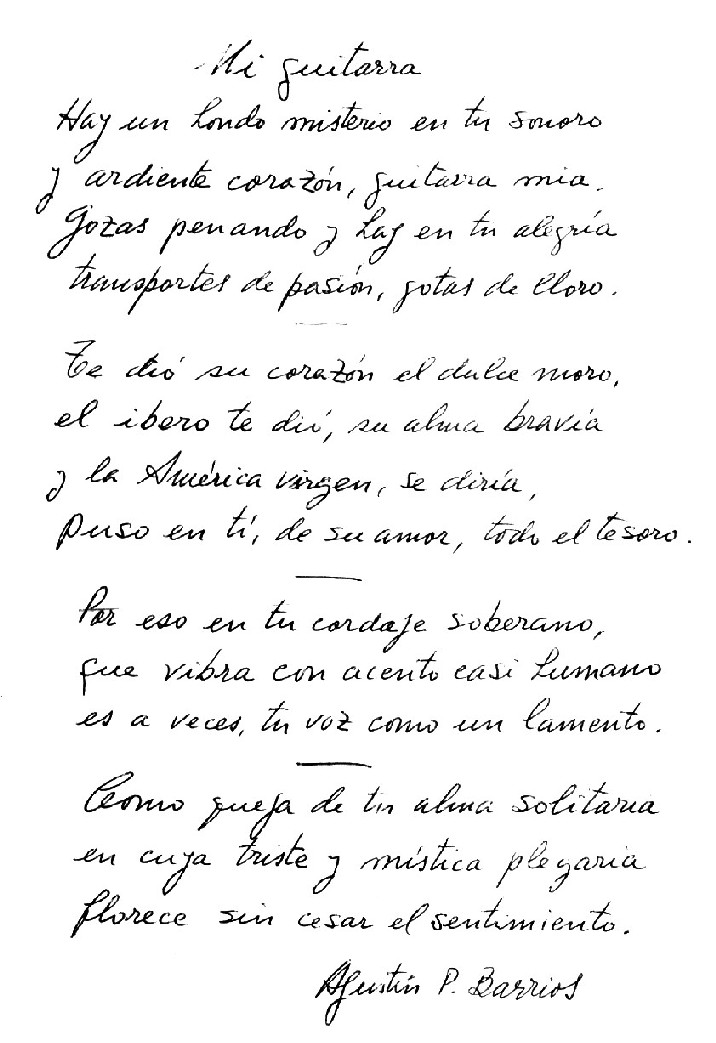 Mi guitarra
Hay un hondo misterio en tu sonoro
y ardiente corazón, guitarra mia.
Gozas penando y hay en tu alegría
transportes de pasión, gotas de lloro.
Te dió su corazón el dulce moro,
el ibero te dió, su alma bravía
y la América virgen, se diría,
puso en tí, de su amor, todo el tesoro.
Por eso en tu cordaje soberano,
que vibra con acento casi humano
es a veces, tu voz como un lamento.
Como queja de tu alma solitaria
en cuya triste y mística plegaria
florece sin cesar el sentimiento.
Agustín P. Barrios